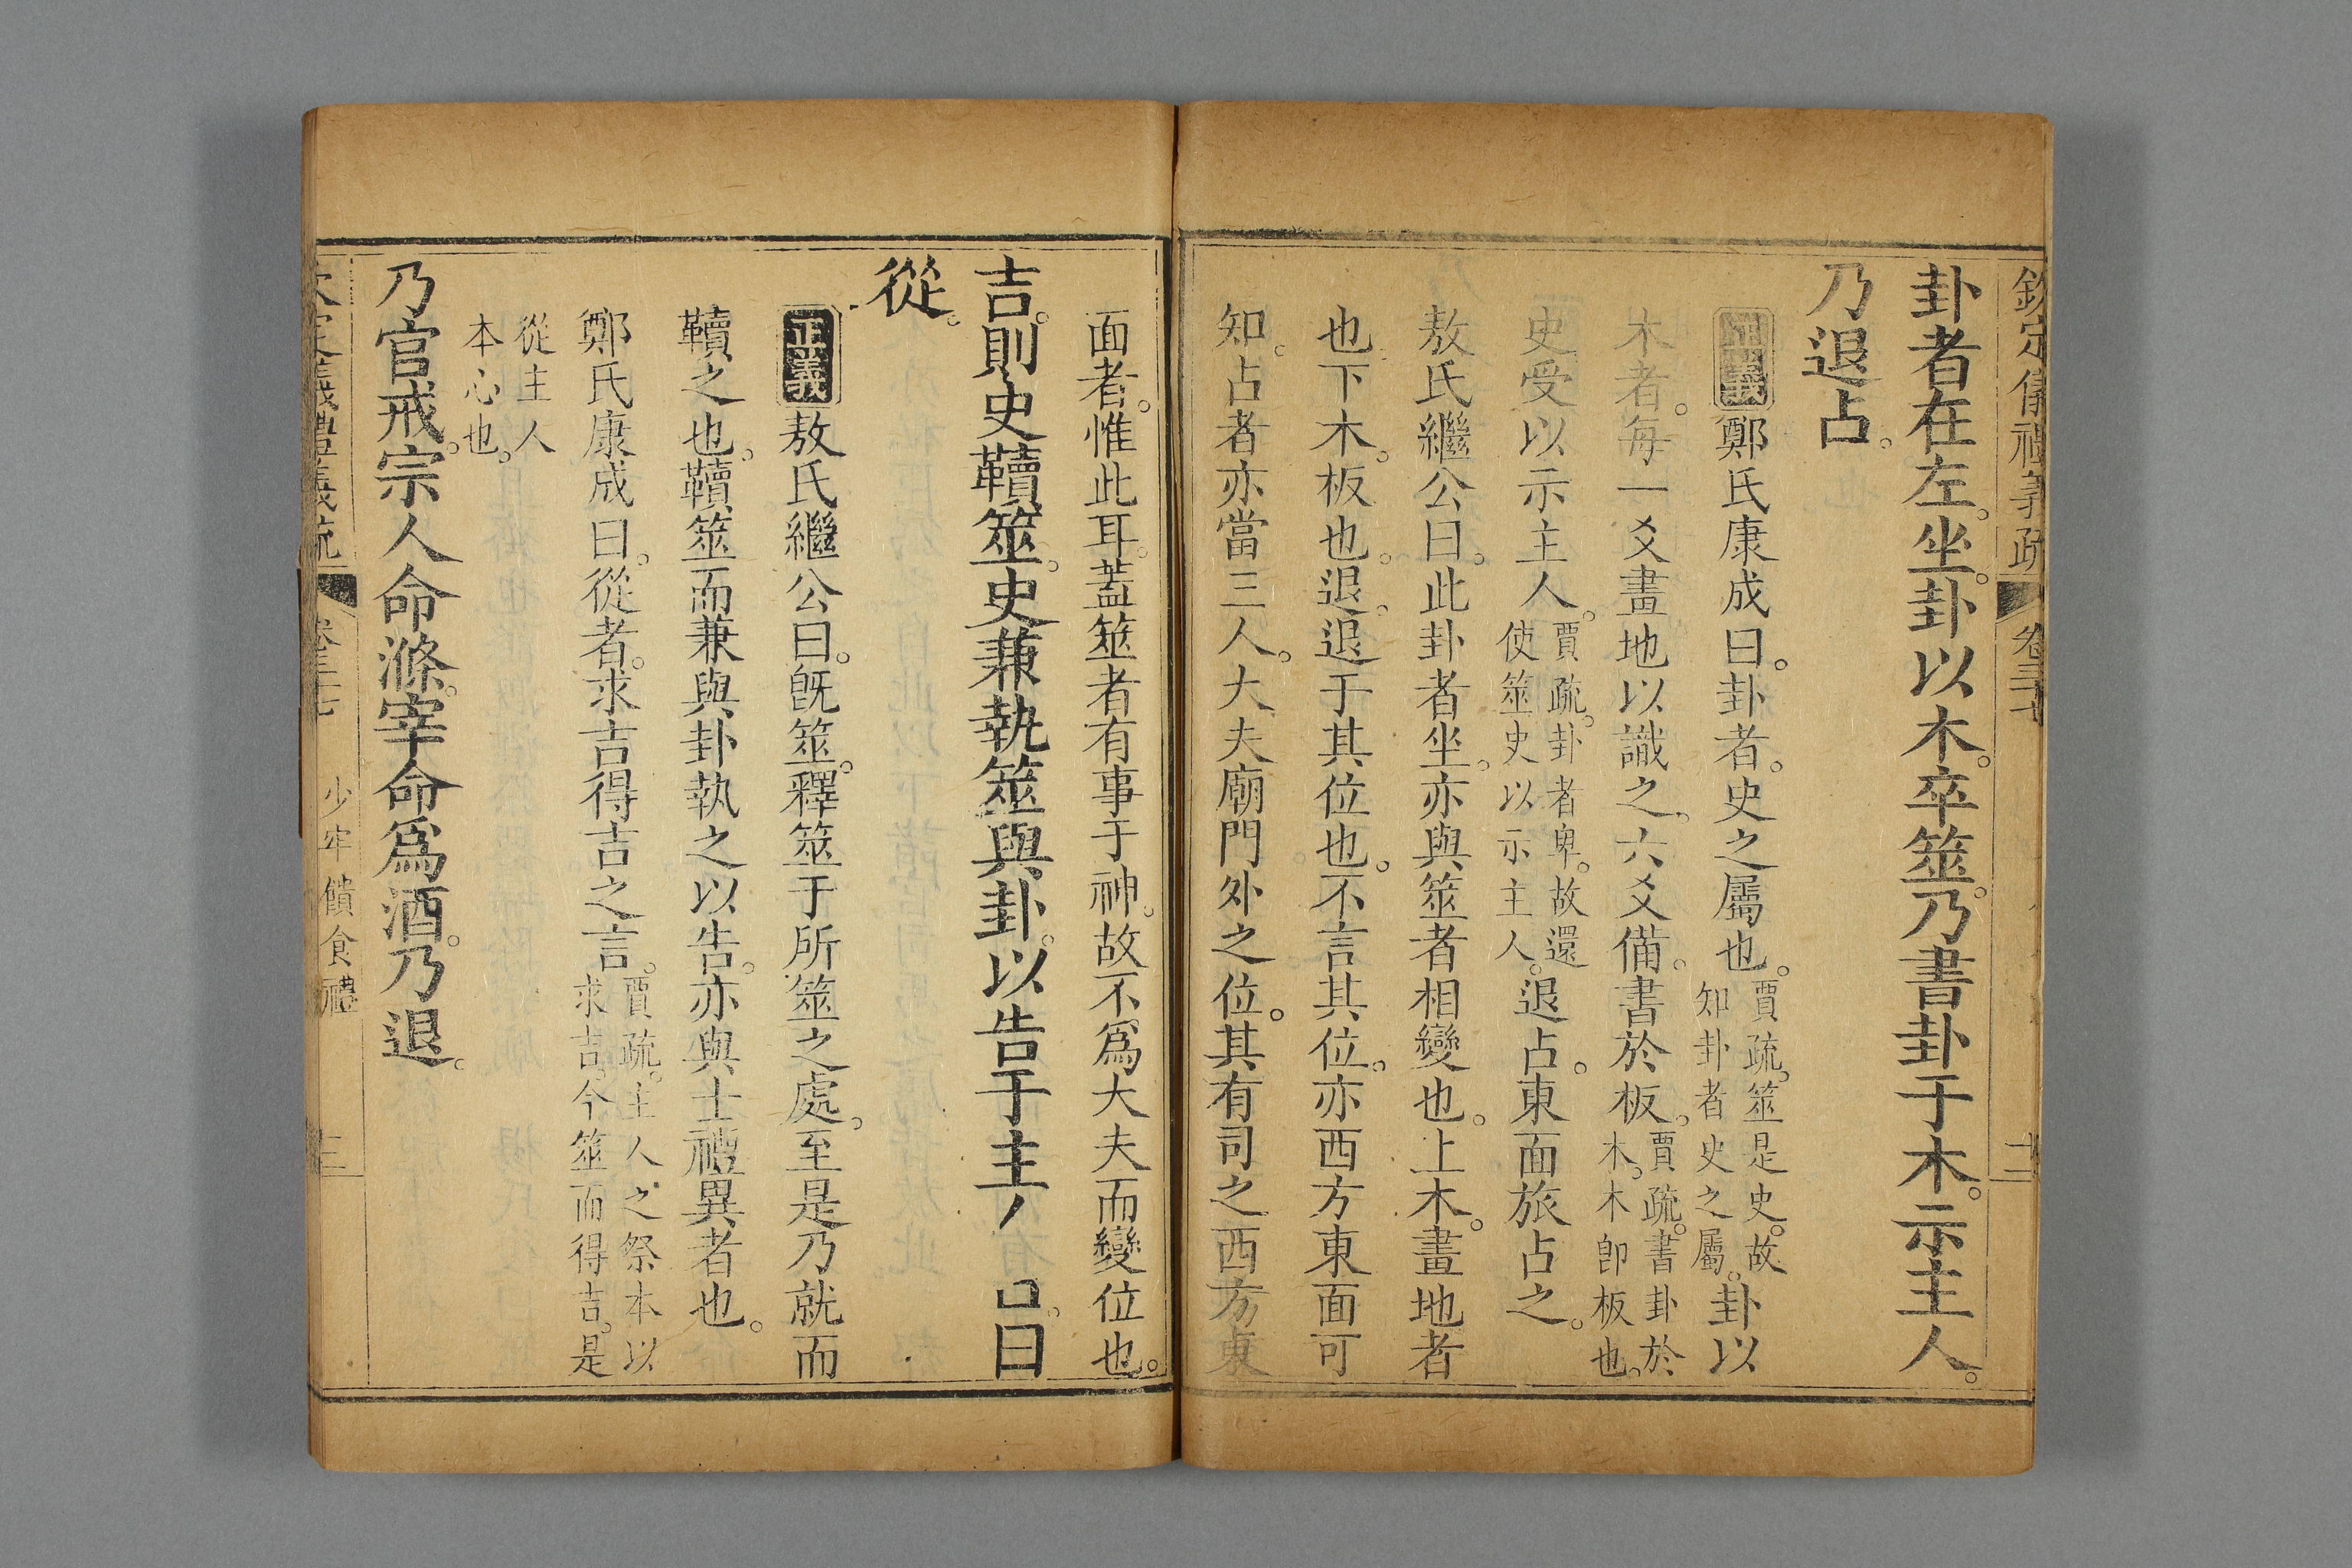 欽定儀禮義疏 卷三十七 十二
卦者在左。坐。卦以木。卒筮。乃書卦于木。示主人。
乃退占。
正義 鄭氏康成曰。卦者。史之屬也。賈疏。筮是史。故知卦者史之屬。卦以
木者。每一爻畫地以識之。六爻備。書於板。賈疏。書卦於木。木卽板也。
史受以示主人。賈疏。卦者卑。故還使筮史以示主人。退占。東面旅占之。
敖氏繼公曰。此卦者坐。亦與筮者相變也。上木。畫地者
也。下木。板也。退。退于其位也。不言其位。亦西方東面可
知。占者亦當三人。大夫廟門外之位。其有司之西方東
面者。惟此耳。蓋筮者有事于神。故不爲大夫而變位也。
吉。則史韇筮。史兼執筮與卦。以告于主 曰
從。
正義 敖氏繼公曰。旣筮。釋筮于所筮之處。至是乃就而
韇之也。韇筮而兼與卦執之以告。亦與士禮異者也。
鄭氏康成曰。從者。求吉得吉之言。賈疏。主人之祭本以求吉。今筮而得吉。是
從主人本心也。
乃官戒。宗人命滌。宰命爲酒。乃退。
欽定儀禮義疏 卷三十七 少牢饋食禮 十三